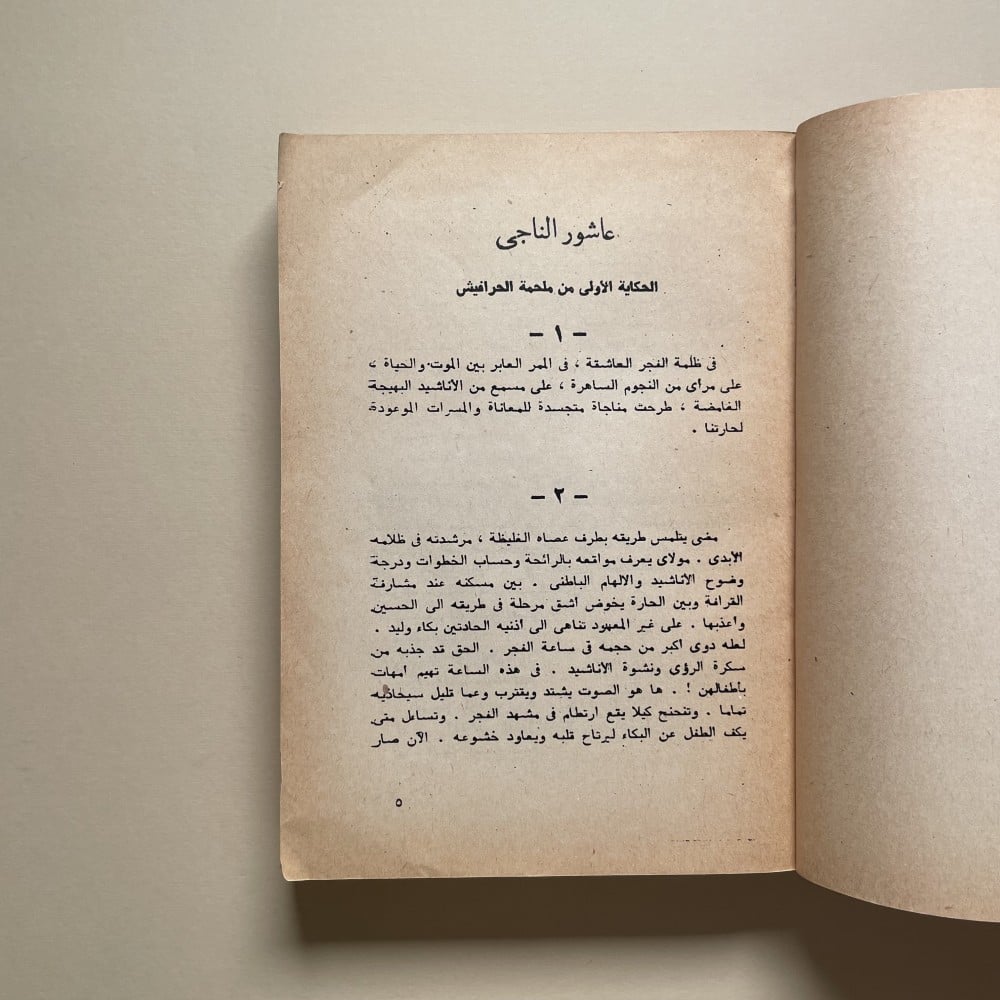 عاشور الناجى
الحكاية الأولى من ملحمة الحرافيش
- ١ -
فى ظلمة الفجر العاشقة ، فى الممر العابر بين الموت والحياة ،
على مرأى من النجوم الساهرة ، على مسمع من الأناشيد البهيجة
الغامضة ، طرحت مناجاة متجسدة للمعاناة والمسرات الموعودة
لحارتنا .
- ٢ -
مضى يتلمس طريقه بطرف عصاه الغليظة ، مرشدته فى ظلامه
الأبدى . مولاى يعرف مواقعه بالرائحة وحساب الخطوات ودرجة
وضوح الأناشيد والالهام الباطنى . بين مسكنه عند مشارفة
القرافة وبين الحارة يخوض أشق مرحلة فى طريقه الى الحسين
وأعذبها . على غير المعهود تناهى الى اذنيه الحادتين بكاء وليد .
لعله دوى اكبر من حجمه فى ساعة الفجر . الحق قد جذبه من
سكرة الرؤى ونشوة الأناشيد . فى هذه الساعة تهيم امهات
بأطفالهن ! . ها هو الصوت يشتد ويقترب وعما قليل سيحاذيه
تماما . وتنحنح كيلا يقع ارتطام فى مشهد الفجر . وتساءل متى
يكف الطفل عن البكاء ليرتاح قلبه ويعاود خشوعه . الآن صار
٥